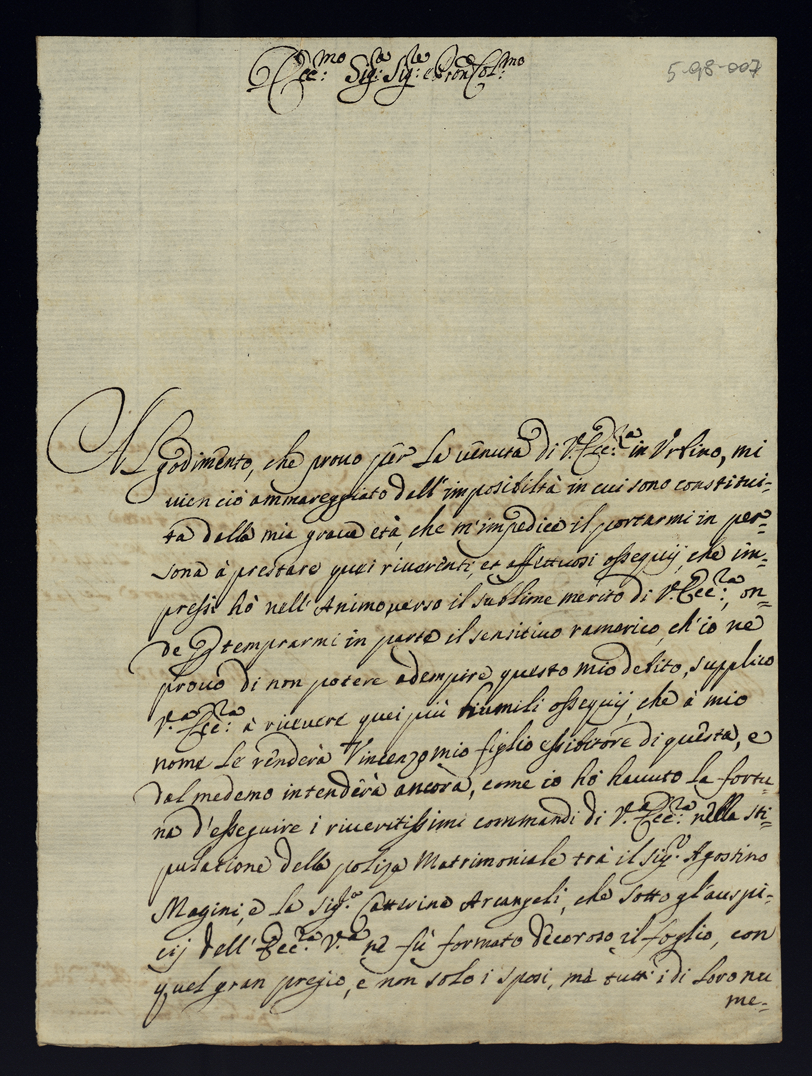 Ecc:mo Sig:r Sig:re e Pron Col:mo
5-98-007
Al godimento, che provo per la venuta di V. Ecc:za in Urbino, mi
vien ciò ammareggiato dall'imposibiltà in cui sono constitui-
ta dalla mia grave età, che m'impedice il portarmi in per-
sona à prestare quei riverenti, et affettuosi osseguij, che im-
pressi hò nell'Animo verso il sublime merito di V. Ecc:za, on-
de temprarmi in parte il sensitivo ramarico, ch'io ne
provo di non potere adempire questo mio debito, supplico
V.a Ecc:za à ricevere quei più humili osseguij, che à mio
nome Le renderà Vincenzo mio figlio essibitore di questa, e
dal medemo intenderà ancora, come io hò havuto la fortu-
na d'esseguire i riveritissimi commandi di V.a Ecc:za nella sti-
pulatione della poliza Matrimoniale trà il Sig.r Agostino
Magini, e la Sig.a Catterina Arcangeli, che sotto gl'auspi-
cij dell'Ecc:za V.a ne fù formato decoroso il foglio, con
quel gran pregio, e non solo i sposi, mà tutti i di loro nu
me-